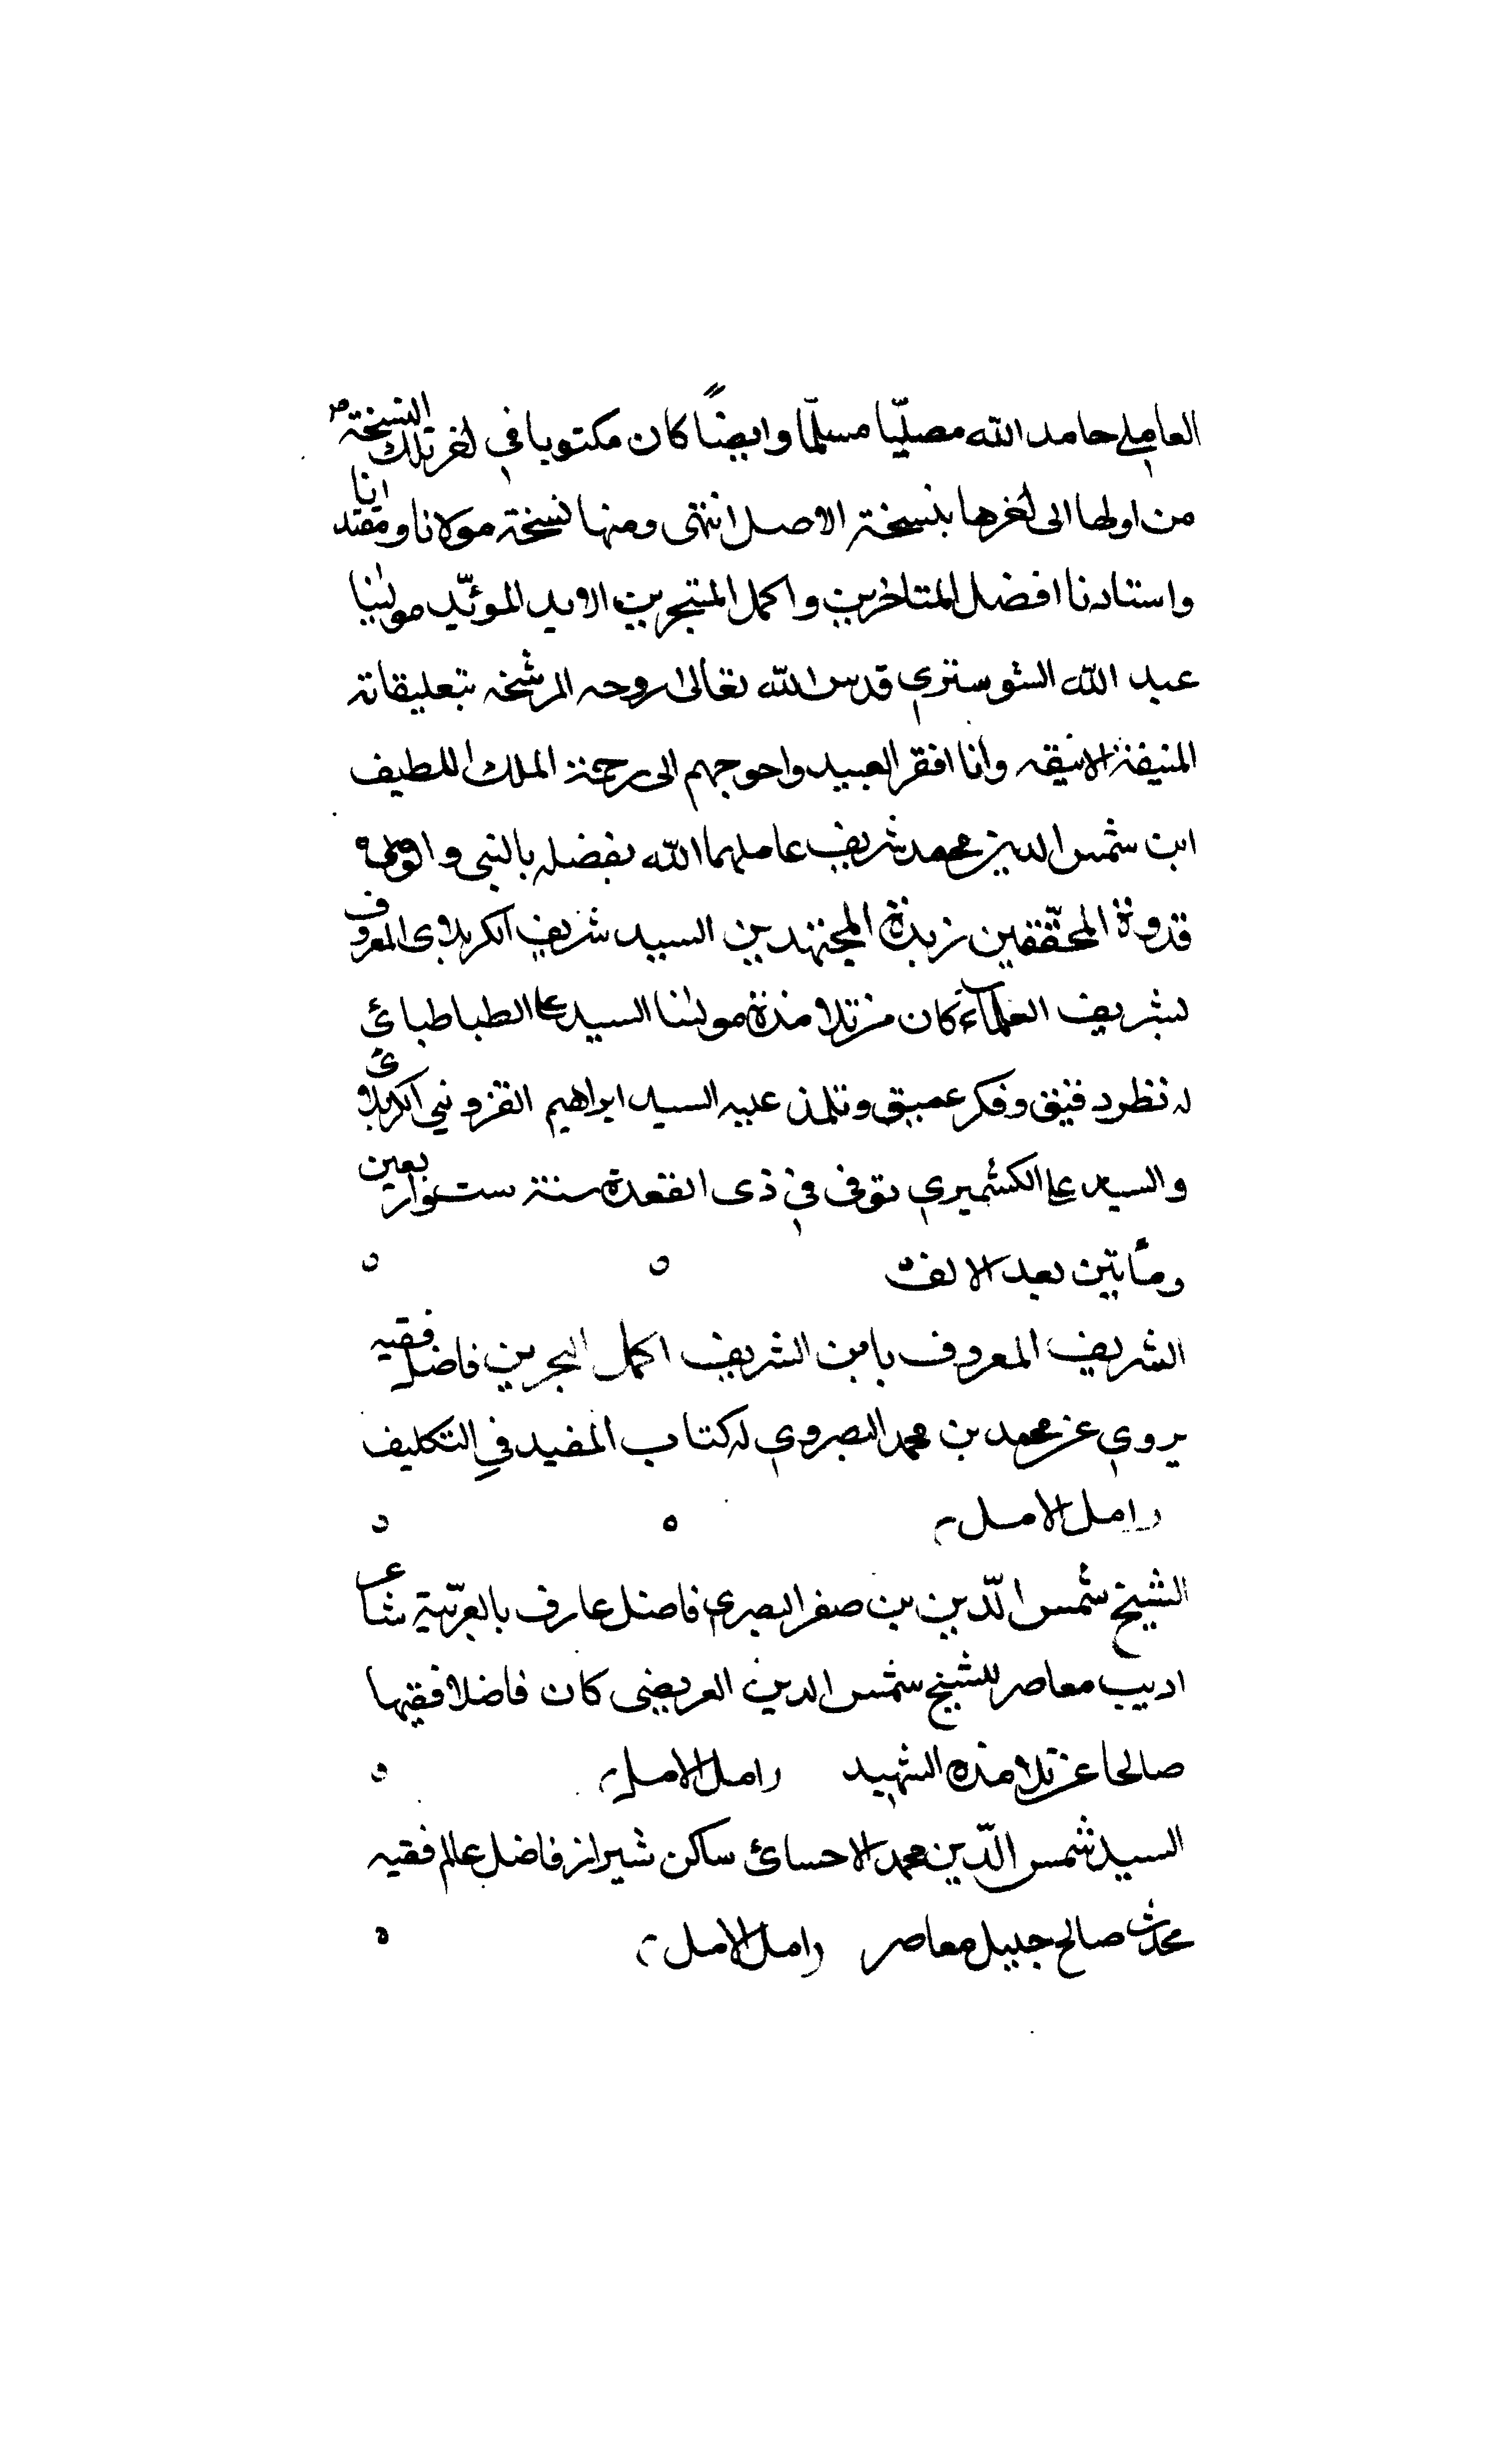 العاملي حامد الله مصلّيا مسلّما وايضًا كان مكتوبا في اخر تلك النسخة
من اولها الى اخرها بنسخة الاصل انتهى ومنها نسخة مولانا ومقتدانا
واستادنا افضل المتاخرين واكمل المتبحرين الايد الموئيّد مولينا
عبد الله الشوستري قدس الله تعالى روحه المرشحة بتعليقاته
المنيفة الانيقه وانا افقر العبيد واحوجهم الى رحمة الملك اللطيف
ابن شمس الدين محمد شريف عاملهما الله بفضله بالنبي والوصي ٥
قدوة المحقّقين زبدة المجتهدين السيد شريف الكربلاى المعروف
بشريف العلماء كان من تلامذة مولينا السيد على الطباطبائ
له نظر دقيق وفكر عميق وتلمذ عليه السيد ابراهيم القزويني الكربلائ
والسيد على الكشميري توفى في ذى القعدة سنة ست واربعين
ومأتين بعد الالف ٥ ٥
الشريف المعروف بابن الشريف اكمل البحرين فاضل فقيه
يروي عن محمد بن محمد البصروي له كتاب المفيد في التكليف
(امل الامل) ٥ ٥
الشيخ شمس الدّين بن صقر البصري فاضل عارف بالعربّية شاعر
اديب معاصر للشيخ شمس الدين العريضى كان فاضلا فقيها
صالحا من تلامذه الشهيد (امل الامل) ٥
السيد شمس الدّين محمد الاحسائ ساكن شيراز فاضل عالم فقيه
محدث صالح جليل معاصر (امل الامل) ٥